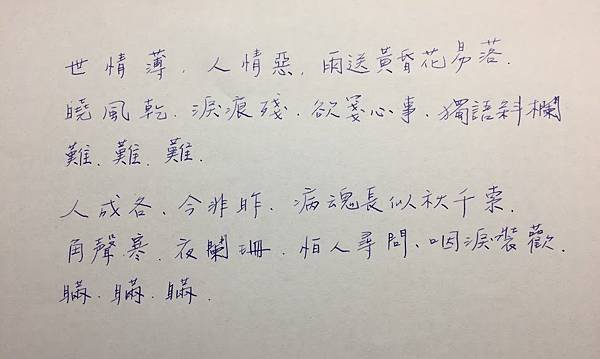 世情薄．人情惡．雨送黃昏花易落．
曉風乾．淚痕殘．欲箋心事．獨語斜欄
難．難．難．
人成各．今非昨．病魂長似秋千索．
角聲寒．夜闌珊．怕人尋問、咽淚裝歡．
瞞．瞞．瞞．